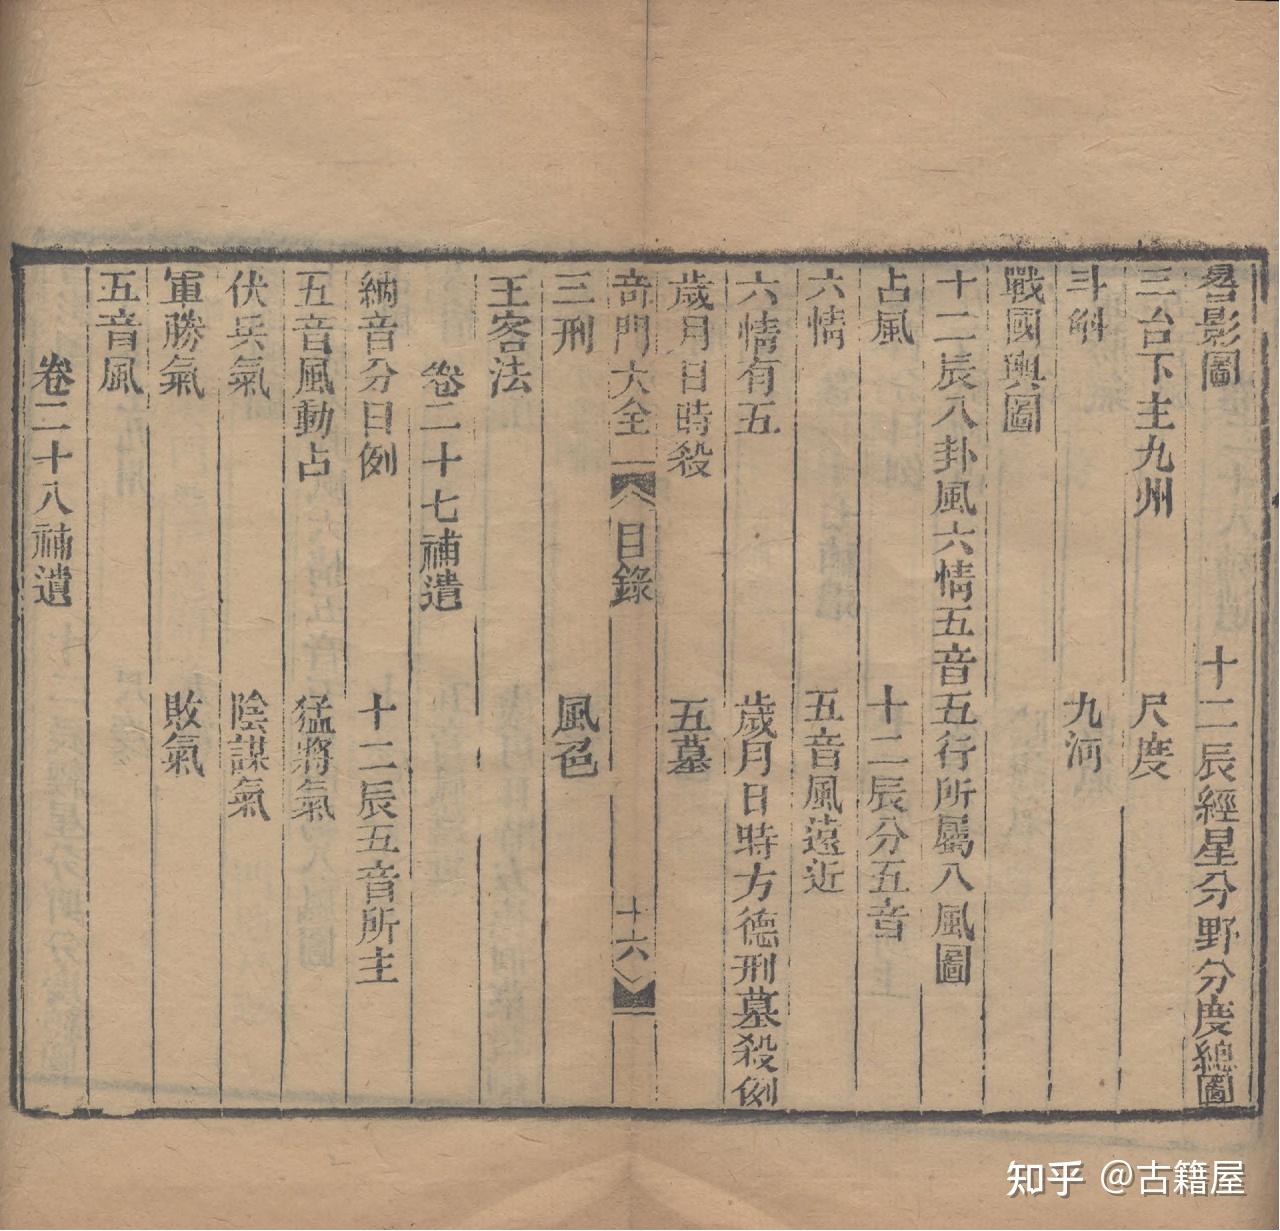 晷影圖　十二辰經星分野分度總圖
三台下主九州　尺度
斗斛　九河
戰國輿圖
十二辰八卦風六情五音五行所屬八風圖
占風　十二辰分五音
六情　五音風遠近
六情有五　歲月日時方德刑墓殺例
歲月日時殺　五墓
奇門大全　目錄　十六
三刑　風色
王客法
卷二十七補遺
納音分日例　十二辰五音所主
五音風動占　猛將氣
伏兵氣　陰謀氣
軍勝氣　敗氣
五音風
卷二十八補遺
知乎 @古籍屋